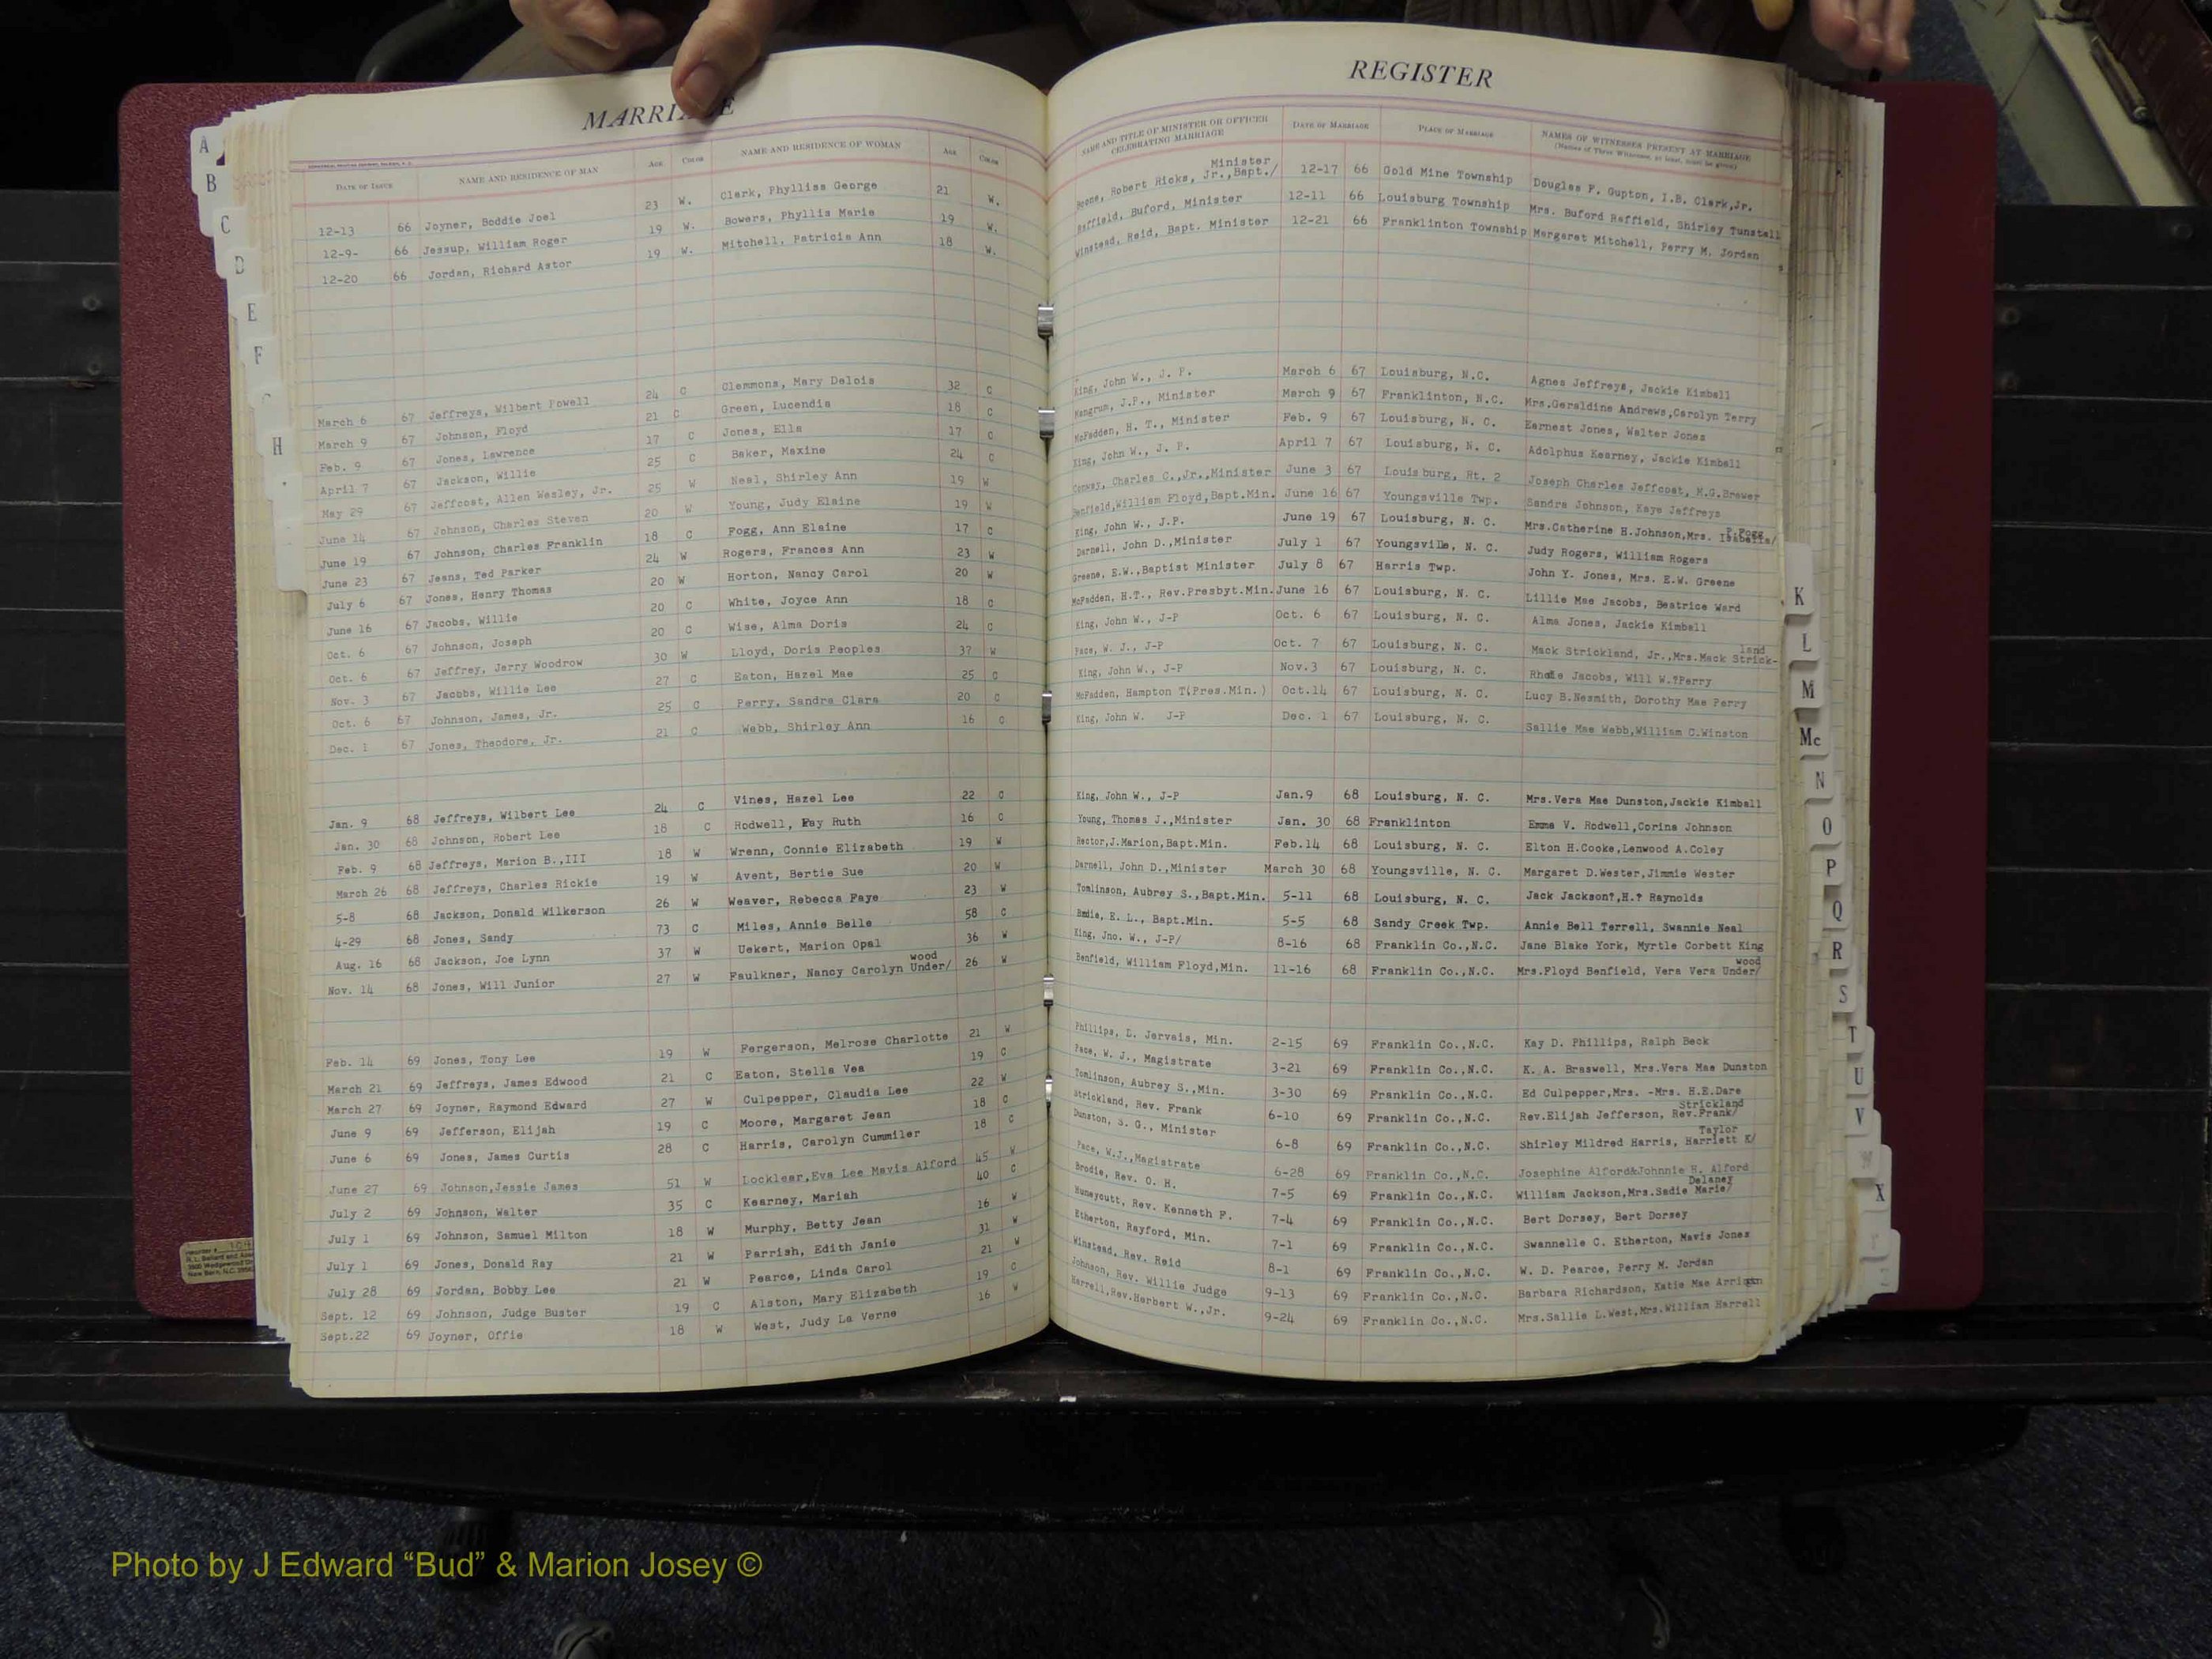 MARRIAGE REGISTER
DATE OF ISSUE NAME AND RESIDENCE OF MAN AGE COLOR NAME AND RESIDENCE OF WOMAN AGE COLOR NAME AND TITLE OF MINISTER OR OFFICER CELEBRATING MARRIAGE DATE OF MARRIAGE PLACE OF MARRIAGE NAMES OF WITNESSES PRESENT AT MARRIAGE
(Names of Three Witnesses, at least, must be given)
12-13 66 Joyner, Boddie Joel 23 W. Clerk, Phylliss George 21 W. Boone, Robert Ricks, Jr.,Bapt./ Minister 12-17 66 Gold Mine Township Douglas F. Gupton, I.B. Clerk,Jr.
12-9- 66 Jessup, William Roger 19 W. Bowers, Phyllis Marie 19 W. Raffield, Buford, Minister 12-11 66 Louisburg Township Mrs. Buford Raffield, Shirley Tunstall
12-20 66 Jordan, Richard Astor 19 W. Mitchell, Patricia Ann 18 W. Winstead, Reid, Bapt. Minister 12-21 66 Franklinton Township Margaret Mitchell, Perry M. Jordan
March 6 67 Jeffreys, Wilbert Powell 24 C Clemmons, Mary Delois 32 C King, John W., J. P. March 6 67 Louisburg, N.C. Agnes Jeffreys, Jackie Kimball
March 9 67 Johnson, Floyd 21 C Green, Lucendia 18 C Mangrum, J.P., Minister March 9 67 Franklinton, N.C. Mrs.Geraldine Andrews,Carolyn Terry
Feb. 9 67 Jones, Lawrence 17 C Jones, Ella 17 C McFadden, H. T., Minister Feb. 9 67 Louisburg, N. C. Earnest Jones, Walter Jones
April 7 67 Jackson, Willie 25 C Baker, Maxine 24 C King, John W., J. P. April 7 67 Louisburg, N. C. Adolphus Kearney, Jackie Kimball
May 29 67 Jeffcoat, Allen Wesley, Jr. 25 W Neal, Shirley Ann 19 W Conway, Charles C.,Jr.,Minister June 3 67 Louisburg, Rt. 2 Joseph Charles Jeffcoat, M.G.Brewer
June 14 67 Johnson, Charles Steven 20 W Young, Judy Elaine 19 W Benfield,William Floyd,Bapt.Min. June 16 67 Youngsville Twp. Sandra Johnson, Kaye Jeffreys
June 19 67 Johnson, Charles Franklin 18 C Fogg, Ann Elaine 17 C King, John W., J.P. June 19 67 Louisburg, N. C. Mrs.Catherine H.Johnson,Mrs. Isabella/ P.Fogg
June 23 67 Jeans, Ted Parker 24 W Rogers, Frances Ann 23 W Darnell, John D.,Minister July 1 67 Youngsville, N. C. Judy Rogers, William Rogers
July 6 67 Jones, Henry Thomas 20 W Horton, Nancy Carol 20 W Greene, E.W.,Baptist Minister July 8 67 Harris Twp. John Y. Jones, Mrs. E.W. Greene
June 16 67 Jacobs, Willie 20 C White, Joyce Ann 18 C McFadden, H.T., Rev.Presbyt.Min. June 16 67 Louisburg, N. C. Lillie Mae Jacobs, Beatrice Ward
Oct. 6 67 Johnson, Joseph 20 C Wise, Alma Doris 24 C King, John W., J-P Oct. 6 67 Louisburg, N. C. Alma Jones, Jackie Kimball
Oct. 6 67 Jeffrey, Jerry Woodrow 30 W Lloyd, Doris Peoples 37 W Pace, W. J., J-P Oct. 7 67 Louisburg, N. C. Mack Strickland, Jr.,Mrs.Mack Strick- land
Nov. 3 67 Jacobs, Willie Lee 27 C Eaton, Hazel Mae 25 C King, John W., J-P Nov.3 67 Louisburg, N. C. Jacobs, Will W.?Perry
Oct. 6 67 Johnson, James, Jr. 25 C Perry, Sandra Clara 20 C McFadden, Hampton T(Pres.Min.) Oct.14 67 Louisburg, N. C. Lucy B.Nesmith, Dorothy Mae Perry
Dec. 1 67 Jones, Theodore, Jr. 21 C Webb, Shirley Ann 16 C King, John W. J-P Dec. 1 67 Louisburg, N. C. Sallie Mae Webb,William C.Winston
Jan. 9 68 Jeffreys, Wilbert Lee 24 C Vines, Hazel Lee 22 C King, John W., J-P Jan.9 68 Louisburg, N. C. Mrs.Vera Mae Dunston,Jackie Kimball
Jan. 30 68 Johnson, Robert Lee 18 C Rodwell, Fay Ruth 16 C Young, Thomas J.,Minister Jan. 30 68 Franklinton Emma V. Rodwell,Corina Johnson
Feb. 9 68 Jeffreys, Marion B.,III 18 W Wrenn, Connie Elizabeth 19 W Rector,J.Marion,Bapt.Min. Feb.14 68 Louisburg, N. C. Elton H.Cooke,Lenwood A.Coley
March 26 68 Jeffreys, Charles Rickie 19 W Avent, Bertie Sue 20 W Darnell, John D.,Minister March 30 68 Youngsville, N. C. Margaret D.Wester,Jimmie Wester
5-8 68 Jackson, Donald Wilkerson 26 W Weaver, Rebecca Faye 23 W Tomlinson, Aubrey S.,Bapt.Min. 5-11 68 Louisburg, N. C. Jack Jackson?,H.? Raynolds
4-29 68 Jones, Sandy 73 C Miles, Annie Belle 58 C E. L., Bapt.Min. 5-5 68 Sandy Creek Twp. Annie Bell Terrell, Swannie Neal
Aug. 16 68 Jackson, Joe Lynn 37 W Uekert, Marion Opal 36 W King, Jno. W., J-P/ 8-16 68 Franklin Co.,N.C. Jane Blake York, Myrtle Corbett King
Nov. 14 68 Jones, Will Junior 27 W Faulkner, Nancy Carolyn Under/ wood 26 W Benfield, William Floyd,Min. 11-16 68 Franklin Co.,N.C. Mrs.Floyd Benfield, Vera Vera Under/ wood
Feb. 14 69 Jones, Tony Lee 19 W Fergerson, Melrose Charlotte 21 W Phillips, L. Jarvais, Min. 2-15 69 Franklin Co.,N.C. Kay D. Phillips, Ralph Beck
March 21 69 Jeffreys, James Edwood 21 C Eaton, Stella Vea 19 C Pace, W. J., Magistrate 3-21 69 Franklin Co.,N.C. K. A. Braswell, Mrs.Vera Mae Dunston
March 27 69 Joyner, Raymond Edward 27 W Culpepper, Claudia Lee 22 W Tomlinson, Aubrey S.,Min. 3-30 69 Franklin Co.,N.C. Ed Culpepper,Mrs. -Mrs. H.E.Dare
June 9 69 Jefferson, Elijah 19 C Moore, Margaret Jean 18 C Strickland, Rev. Frank 6-10 69 Franklin Co.,N.C. Rev.Elijah Jefferson, Rev.Frank/ Strickland
June 6 69 Jones, James Curtis 28 C Harris, Carolyn Cummiler 18 C Dunston, S. G., Minister 6-8 69 Franklin Co.,N.C. Shirley Mildred Harris, Harriett K/ Taylor
June 27 69 Johnson,Jessie James 51 W Locklear,Eva Lee Mavis Alford 45 W Pace, W.J.,Magistrate 6-28 69 Franklin Co.,N.C. Josephine Alford&Johnnie H. Alford
July 2 69 Johnson, Walter 35 C Kearney, Mariah 40 C Brodie, Rev. O. H. 7-5 69 Franklin Co.,N.C. William Jackson,Mrs.Sadie Marie/ Delaney
July 1 69 Johnson, Samuel Milton 18 W Murphy, Betty Jean 16 W Huneycutt, Rev. Kenneth F. 7-4 69 Franklin Co.,N.C. Bert Dorsey, Bert Dorsey
July 1 69 Jones, Donald Ray 21 W Parrish, Edith Janie 31 W Etherton, Rayford, Min. 7-1 69 Franklin Co.,N.C. Swannelle C. Etherton, Mavis Jones
July 28 69 Jordan, Bobby Lee 21 W Pearce, Linda Carol 21 W Winstead, Rev. Reid 8-1 69 Franklin Co.,N.C. W. D. Pearce, Perry M. Jordan
Sept. 12 69 Johnson, Judge Buster 19 C Alston, Mary Elizabeth 19 C Johnson, Rev. Willie Judge 9-13 69 Franklin Co.,N.C. Barbara Richardson, Katie Mae Arrington
Sept.22 69 Joyner, Offie 18 W West, Judy La Verne 16 W Harrell,Rev.Herbert W.,Jr. 9-24 69 Franklin Co.,N.C. Mrs.Sallie L.West,Mrs.William Harrell
A
B
C
D
E
F
H
K
L
M
Mc
N
O
P
Q
R
S
T
U
V
X
Photo by J Edward “Bud” & Marion Josey ©